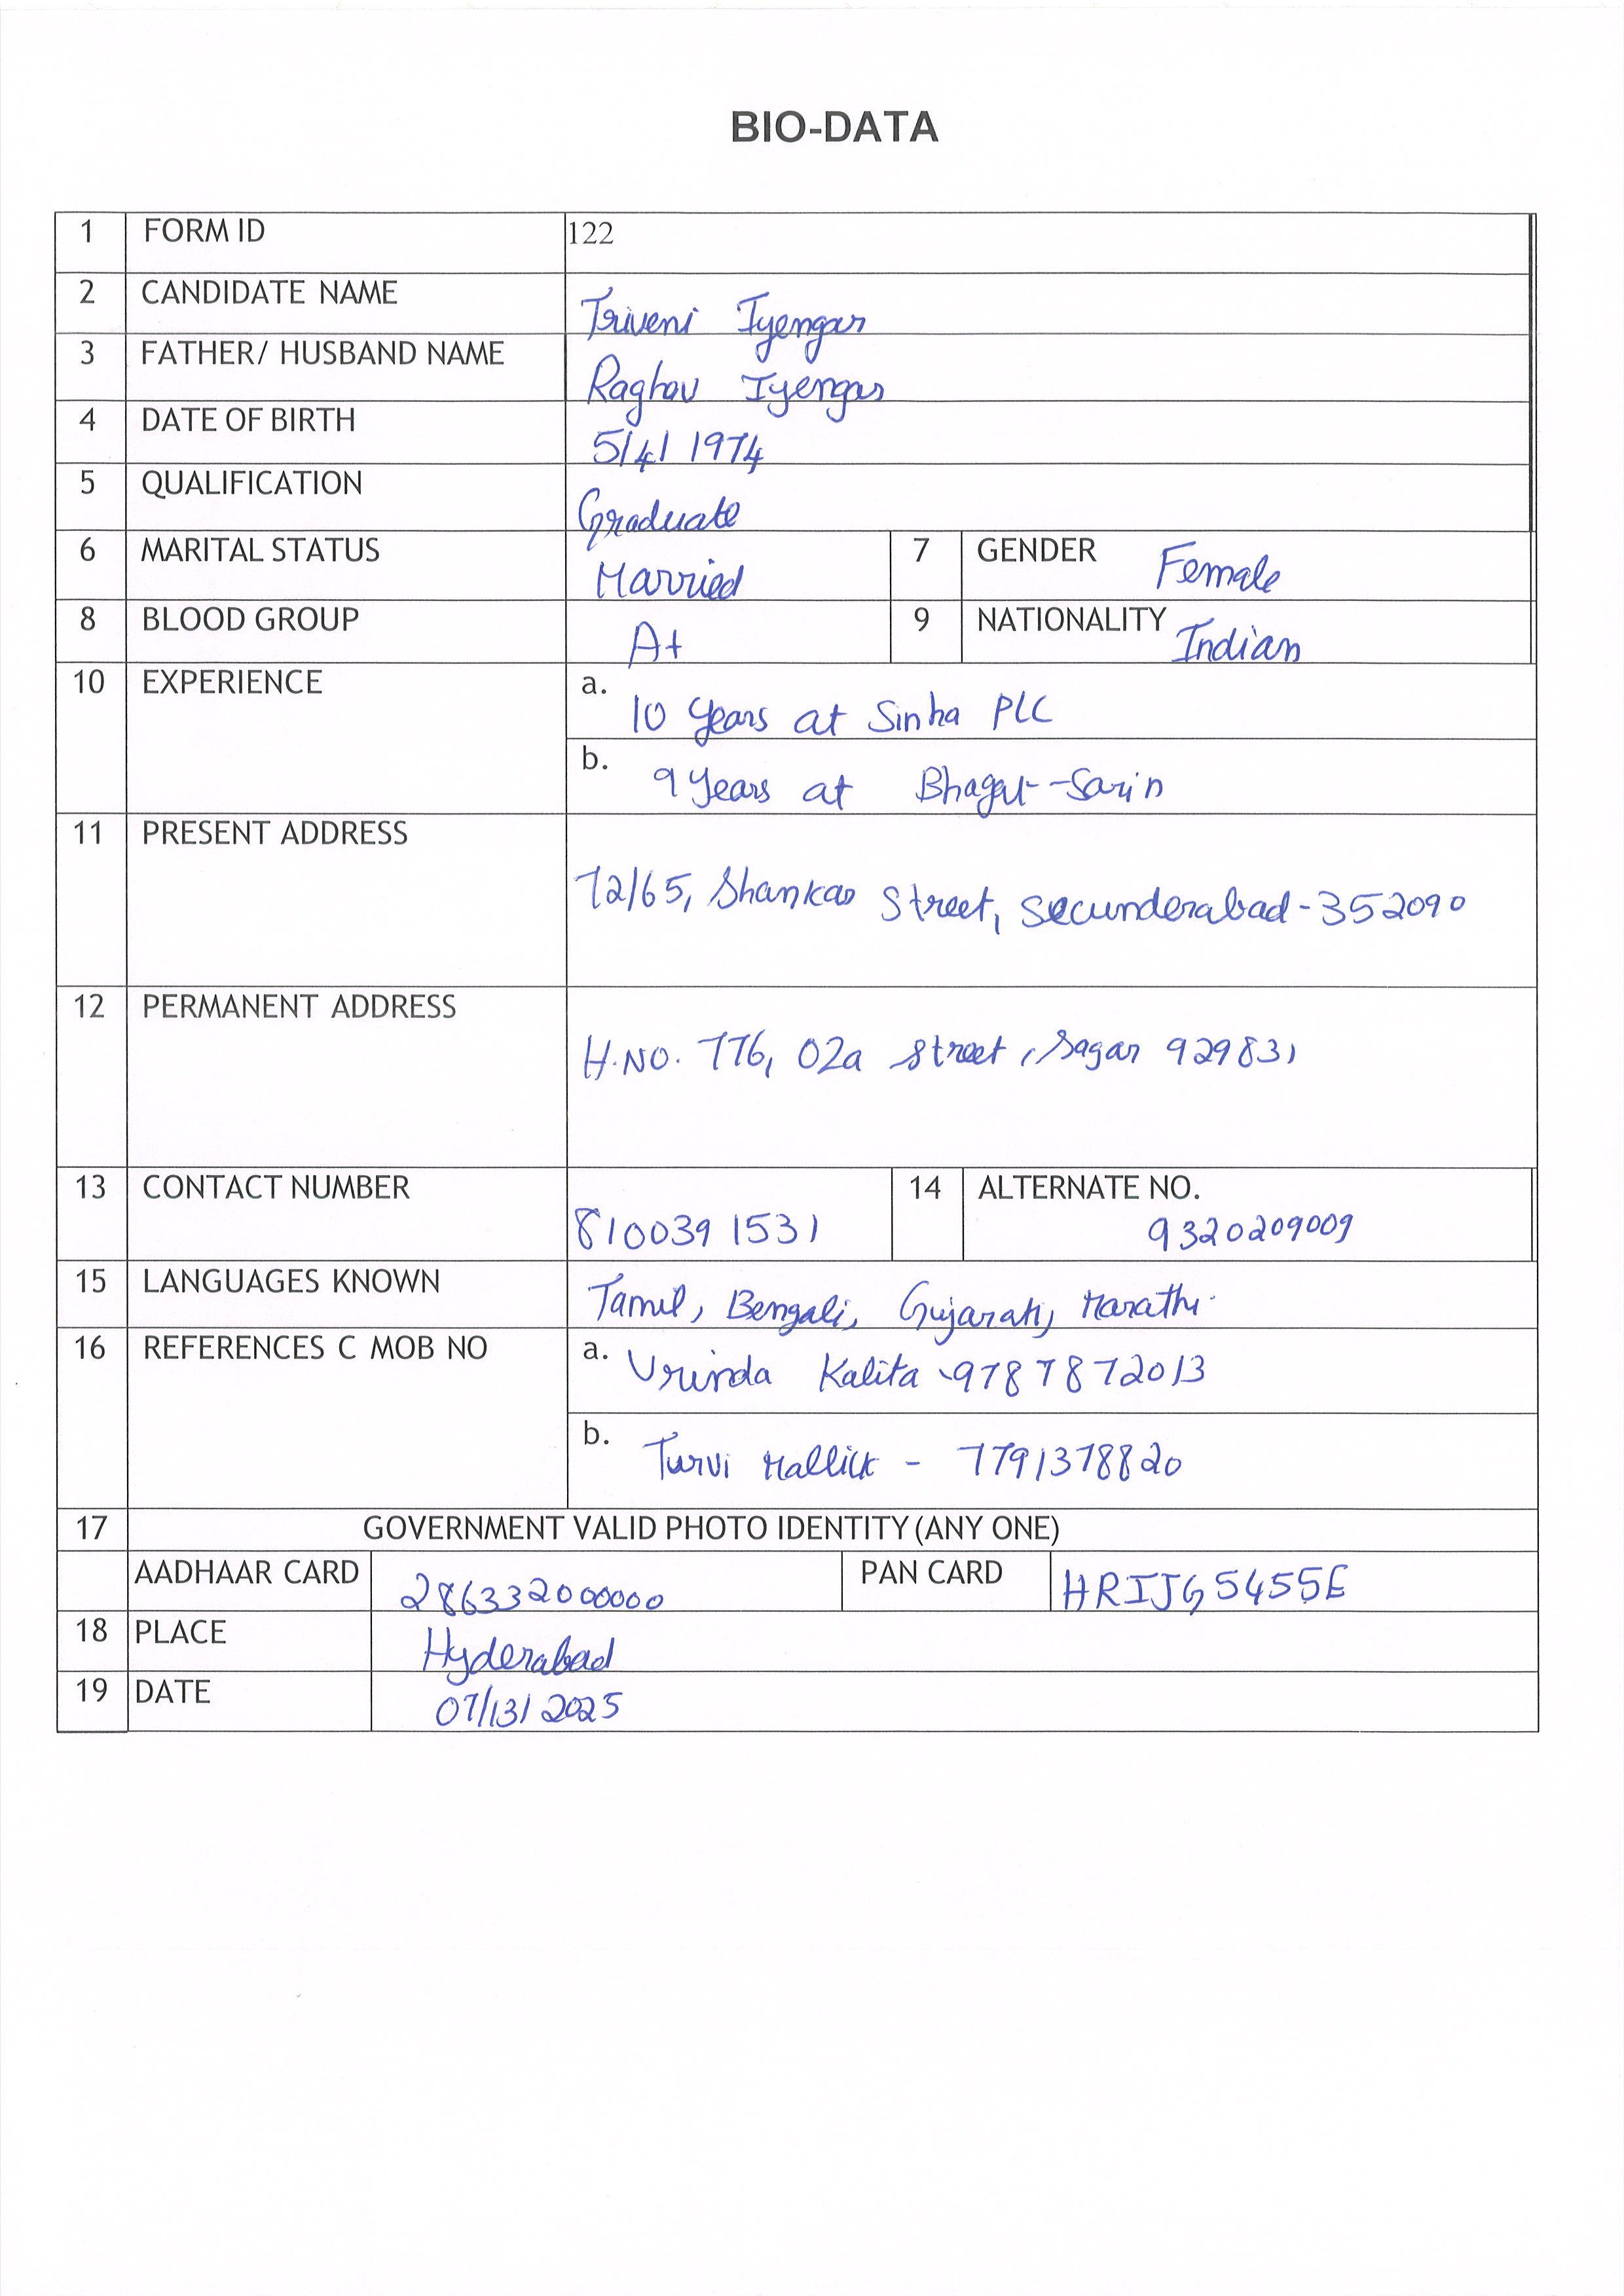 BIO-DATA
1 FORM ID 122
2 CANDIDATE NAME Triveni Iyengar
3 FATHER/ HUSBAND NAME Raghav Iyengar
4 DATE OF BIRTH 5/4/1974
5 QUALIFICATION Graduate
6 MARITAL STATUS Married 7 GENDER Female
8 BLOOD GROUP A+ 9 NATIONALITY Indian
10 EXPERIENCE a. 10 Years at Sinha PLC
b. 9 Years at Bhagat-Sarin
11 PRESENT ADDRESS
72/65, Shankar Street, Secunderabad-352090
12 PERMANENT ADDRESS
H.NO. 776, 02a Street, Sagar 929831
13 CONTACT NUMBER 8100391531 14 ALTERNATE NO. 9320209009
15 LANGUAGES KNOWN Tamil, Bengali, Gujarati, Marathi.
16 REFERENCES C MOB NO a. Vrinda Kalita -9787872013
b. Turvi Mallick - 7791378820
17 GOVERNMENT VALID PHOTO IDENTITY (ANY ONE)
AADHAAR CARD 286332000000 PAN CARD HRIJG5455E
18 PLACE Hyderabad
19 DATE 07/13/2025